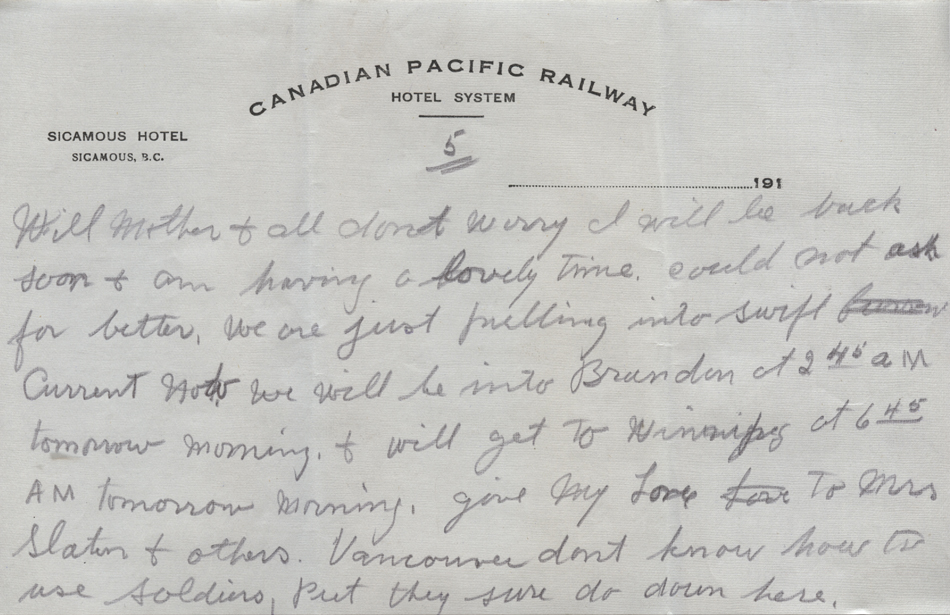 CANADIAN PACIFIC RAILWAY
HOTEL SYSTEM
SICAMOUS HOTEL
SICAMOUS, B.C.
5
191
Will Mother & all dont worry I will be back
soon & am having a lovely time. could not ask
for better, We are just pulling into swift
Current Now we will be into Brandon at 2 45 a M
tomorrow morning. & will get To Winnipeg at 6 45
AM tomorrow Morning. give My Love love To Mrs
Slater & others. Vancouver dont know how to
use soldiers, But they sure do down here.